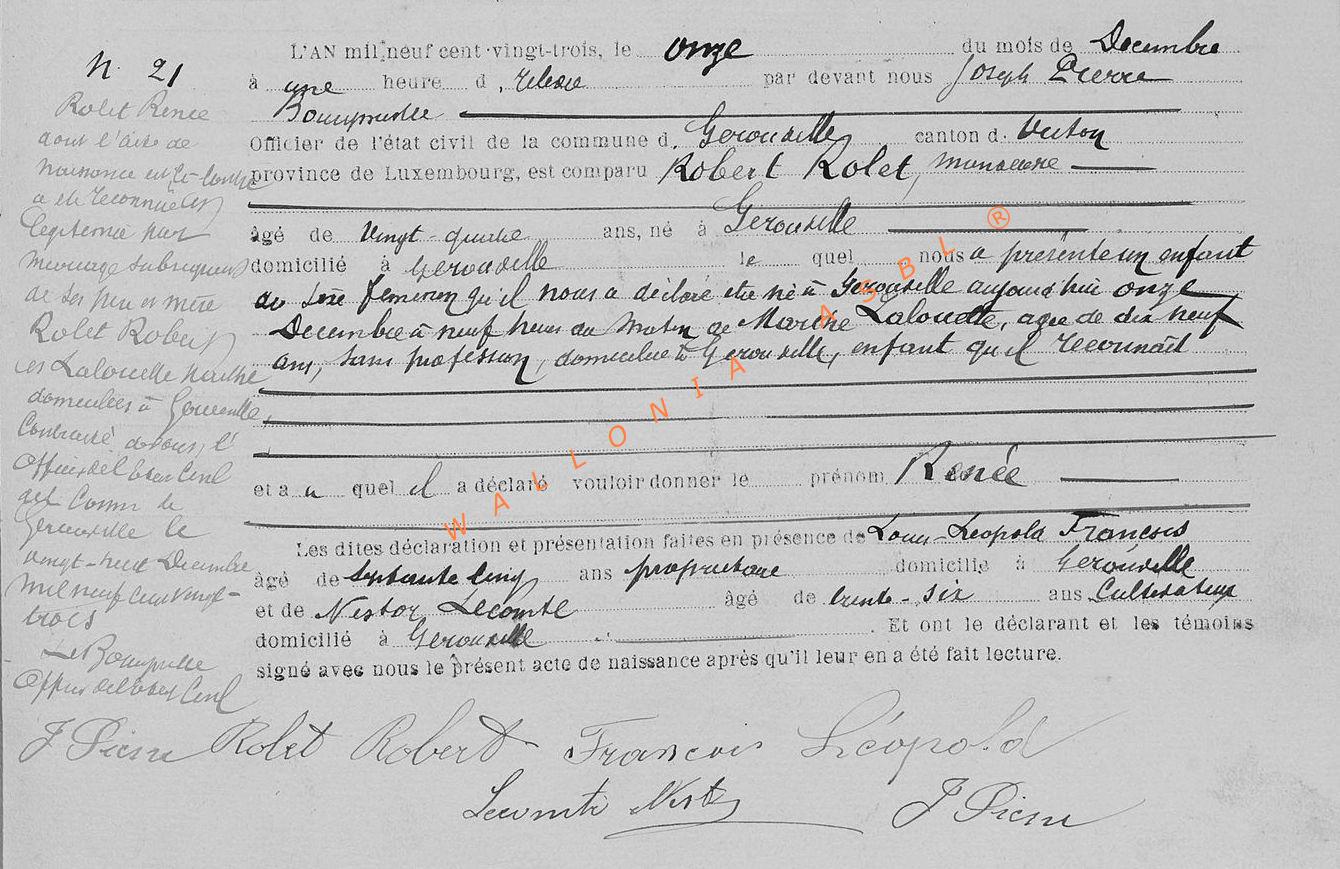 N. 21
Rolet Renée
dont l'acte de
naissance est ci-contre
a été reconnue et
légitimée par
mariage subséquent
de ses père et mère
Rolet Robert
et Lalouette Marthe
domiciliés à Gérouville,
contracté devant l'
Officier de l'Etat Civil
de Gérouville le
vingt-neuf Décembre
mil neuf cent vingt-
trois
Le Bourgmestre
Officier de l'Etat Civil
J Pierre
L'AN mil neuf cent vingt-trois, le onze du mois de Decembre
à une heure d, relevée par devant nous Joseph Pierre
Bourgmestre
Officier de l'état civil de la commune d, Gerouville canton d. Virton
province de Luxembourg, est comparu Robert Rolet, menuisier
âgé de vingt-quatre ans, né à Gerouville
domicilié à Gerouville le quel nous a présenté un enfant
de sexe féminin qu'il nous a déclaré être né à Gerouville aujourd'hui onze
Decembre à neuf heures du matin de Marthe Lalouette, agée de dix neuf
ans, sans profession, domiciliée à Gerouville, enfant qu'il reconnait
et a u quel il a déclaré vouloir donner le prénom Renée
Les dites déclaration et présentation faites en présence de Louis-Leopold François
âgé de septante cinq ans propriétaire domicilié à Gérouville
et de Nestor Lecomte âgé de trente-six ans Cultivateur
domicilié à Gerouville. Et ont le déclarant et les témoins
signé avec nous le présent acte de naissance après qu'il leur en a été fait lecture.
Rolet Robert François Léopold
Lecomte Nestor J Pierre
WALLONIA ASBL ®